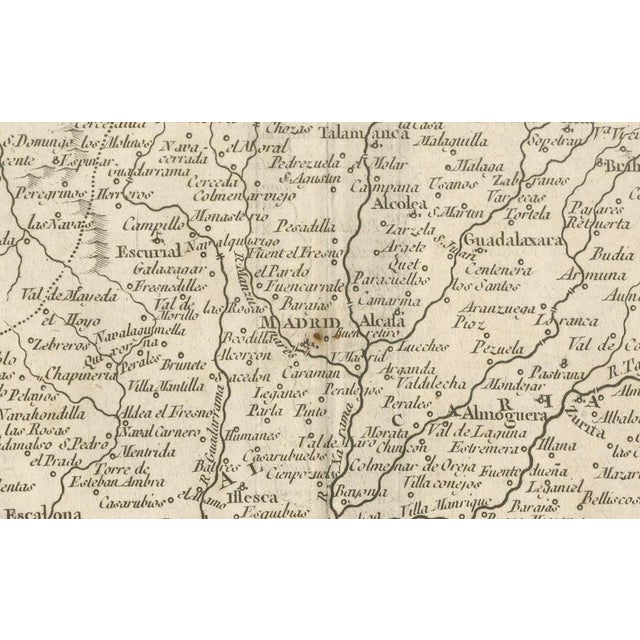 Chozas
la Casa
Talamanca
Sopetran
S. Domingo
los Molinos
Nava
cerrada
el Moral
Malaguilla
Pedrezuela
el Molar
Malaga
Espinar
Guadarrama
Cerceda
S. Agustin
Campana
Usanos
Peregrinos
Herreros
Colmenar viejo
Alcolea
S. Martin
Tortela
Pajares
Retuerta
las Navas
Campillo
Monasterio
Pesadilla
Zarzela
Escurial
Navalquexigo
Fuent el Fresno
Argete
Guadalaxara
Budia
Galapagar
el Pardo
Quet
Centenera
Armuna
Fresnedilles
Fuencarrale
Paracuellos
los Santos
Val de Maqueda
Val de
Morillo
las Rosas
Barajas
Camarma
Aranzuega
Loranca
el Hoyo
MADRID
Alcala
Pioz
Zebreros
Navalagumella
Buen retiro
Lueches
Pezuela
Val de
Alcorcon
Madrid
Chapineria
Perales
Brunete
Caraman
Arganda
Pastrana
R. Ta
Villa Mantilla
Leganes
Perales
Valdilecha
Mondejar
Navahondilla
Aldea el Fresno
Parla
Pinto
Perales
C A R I A
Almoguera
Zurita
las Rosas
Naval Carnero
Humanes
Val de Moro
Morata
Val de Laguna
S. Pedro
Chincon
Estremera
Illana
el Prado
Mentrida
Casarubuelos
Torre de
Esteban Ambra
Batres
Cienpozuelo
Colmenar de Oreja
Fuente dueña
R. Guadarrama
R. Xarama
Casarubios
Illesca
Bayona
Villa conejos
Leganiel
Belliscos
Escalona
Esquibias
Villa Manrique
Barajas